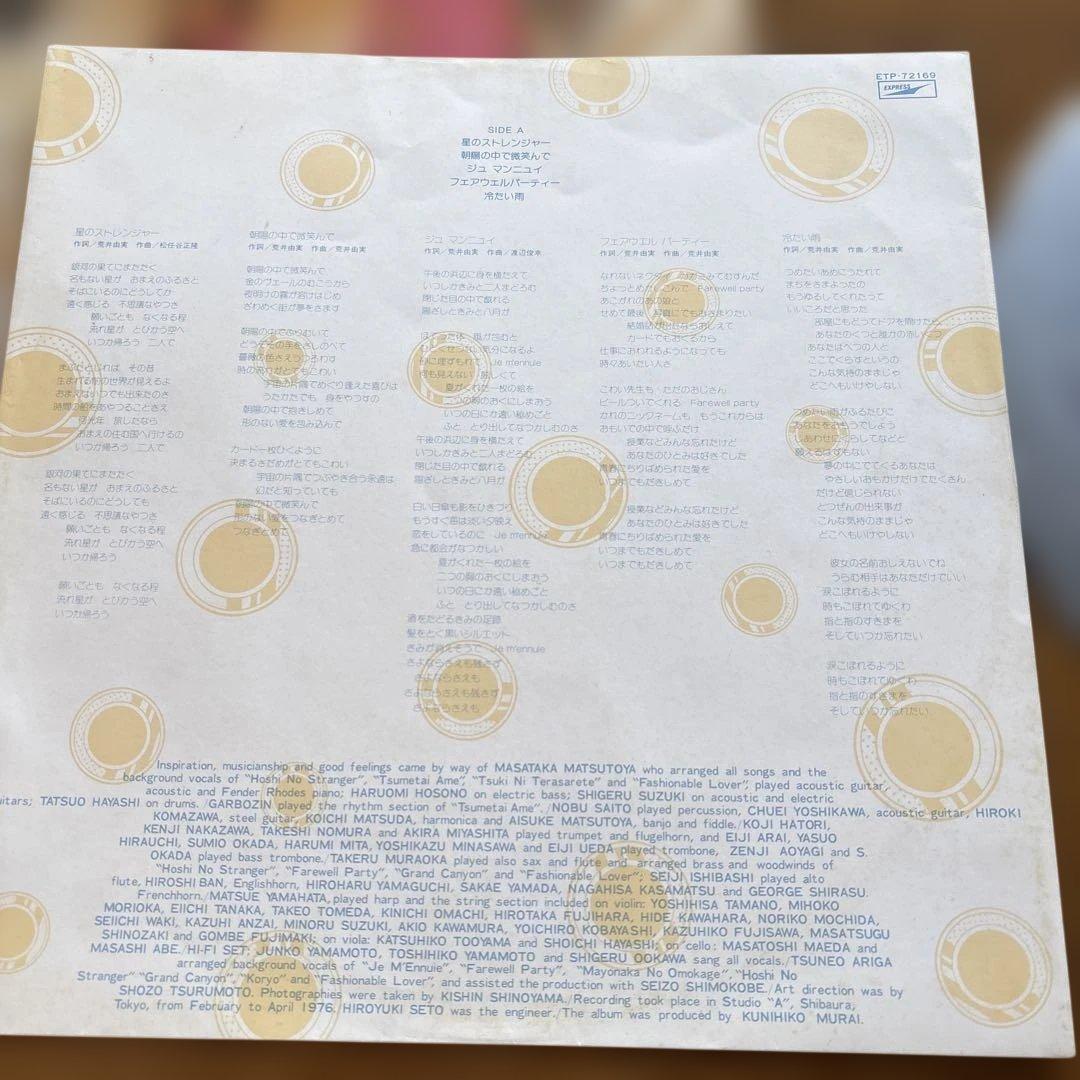 ETP-72169
EXPRESS
SIDE A
星のストレンジャー
朝陽の中で微笑んで
ジュ マンニュイ
フェアウェルパーティー
冷たい雨
星のストレンジャー
作詞/荒井由実 作曲/松任谷正隆
銀河の果てにまたたく
名もない星が おまえのふるさと
そばにいるのにどうしてか
遠く感じる 不思議なやつさ
願いごとも なくなる程
流れ星が とびかう空へ
いつか帰ろう 二人で
まぶたとじれば その昔
生まれる前の世界が見えるよ
おまえなしでも出来たのさ
時間の船をあやつることさえ
何光年 旅したなら
おまえの住む国へ行けるの
いつか帰ろう 二人で
銀河の果てにまたたく
名もない星が おまえのふるさと
そばにいるのにどうしても
遠く感じる 不思議なやつさ
願いごとも なくなる程
流れ星が とびかう空へ
いつか帰ろう
願いごとも なくなる程
流れ星が とびかう空へ
いつか帰ろう
朝陽の中で微笑んで
作詞/荒井由実 作曲/荒井由実
朝陽の中で微笑んで
金のヴェールのむこうから
夜明けの霧が溶けはじめ
ざわめく街が夢をさます
朝陽の中でふりむいて
どうぞその手をさしのべて
薔薇の色さえうつろわす
時の流れがとてもこわい
宇宙の片隅でめぐり逢えた喜びは
うたかたでも 身をやつすの
朝陽の中で抱きしめて
形のない愛を包み込んで
カード一枚ひくように
決まるさだめがとてもこわい
宇宙の片隅でつぶやき合う永遠は
幻だと知っていても
朝陽の中で微笑んで
形のない愛をつなぎとめて
つなぎとめて
ジュ マンニュイ
作詞/荒井由実 作曲/渡辺俊幸
午後の浜辺に身を横たえて
いつしかきみと二人まどろむ
閉じた目の中で戯れる
陽ざしときみと八月が
Je m'ennuie
夏がくれた一枚の絵を
二つの胸のおくにしまおう
いつの日にか遠い秘めごと
ふと とり出してなつかしむのさ
午後の浜辺に身を横たえて
いつしかきみと二人まどろむ
閉じた目の中で戯れる
陽ざしときみと八月が
白い日傘も影をひきずり
もうすぐ岳は淡い夕映え
恋をしているのに Je m'ennuie
急に都会がなつかしい
夏がくれた一枚の絵を
二つの胸のおくにしまおう
いつの日にか遠い秘めごと
ふと とり出してなつかしむのさ
渚をたどるきみの足跡
髪をとく黒いシルエット
きみが消えそうで Je m'ennuie
さよならさえも残さず
さよならさえも
さよならさえも残さず
さよならさえも
フェアウエル パーティー
作詞/荒井由実 作曲/荒井由実
Farewell party
あこがれのあの娘と
せめて最後 写真にでもおさまりたい
結婚話が出たならおしえて
カードでもおくるから
仕事におわれるようになっても
時々あいたい人さ
こわい先生も ただのおじさん
ビールついてくれる Farewell party
かれのニックネームも もうこれからは
おもいでの中で呼ぶだけ
授業などみんな忘れたけど
あなたのひとみは好きでした
青春にちりばめられた愛を
いつまでもだきしめて
授業などみんな忘れたけど
あなたのひとみは好きでした
青春にちりばめられた愛を
いつまでもだきしめて
いつまでもだきしめて
冷たい雨
作詞/荒井由実 作曲/荒井由実
つめたいあめにうたれて
まちをさまよったの
もうゆるしてくれたって
いいころだと思った
部屋にもどってドアを開けたら
あなたのくつと誰かの赤いくつ
あなたはべつの人と
ここでくらすというの
こんな気持のままじゃ
どこへもいけやしない
つめたい雨がふるたびに
あなたをおもうでしょう
しあわせにくらしてなどと
願えるはずもない
夢の中にでてくるあなたは
やさしいおもかげだけでたくさん
だけど信じられない
とつぜんの出来事が
こんな気持のままじゃ
どこへもいけやしない
彼女の名前おしえないでね
うらむ相手はあなただけでいい
涙こぼれるように
時もこぼれてゆくわ
指と指のすきまを
そしていつか忘れたい
涙こぼれるように
時もこぼれてゆくわ
指と指のすきまを
そしていつか忘れたい
Inspiration, musicianship and good feelings came by way of MASATAKA MATSUTOYA who arranged all songs and the
background vocals of "Hoshi No Stranger", "Tsumetai Ame", "Tsuki Ni Terasarete" and "Fashionable Lover"; played acoustic guitar,
acoustic and Fender Rhodes piano; HARUOMI HOSONO on electric bass; SHIGERU SUZUKI on acoustic and electric
uitars; TATSUO HAYASHI on drums./GARBOZIN played the rhythm section of "Tsumetai Ame"./NOBU SAITO played percussion, CHUEI YOSHIKAWA, acoustic guitar, HIROKI
KOMAZAWA, steel guitar, KOICHI MATSUDA, harmonica and AISUKE MATSUTOYA, banjo and fiddle./KOJI HATORI,
KENJI NAKAZAWA, TAKESHI NOMURA and AKIRA MIYASHITA played trumpet and flugelhorn, and EIJI ARAI, YASUO
HIRAUCHI, SUMIO OKADA, HARUMI MITA, YOSHIKAZU MINASAWA and EIJI UEDA played trombone, ZENJI AOYAGI and S.
OKADA played bass trombone./TAKERU MURAOKA played also sax and flute and arranged brass and woodwinds of
"Hoshi No Stranger", "Farewell Party", "Grand Canyon" and "Fashionable Lover"; SEIJI ISHIBASHI played alto
flute, HIROSHI BAN, Englishhorn, HIROHARU YAMAGUCHI, SAKAE YAMADA, NAGAHISA KASAMATSU and GEORGE SHIRASU.
Frenchhorn./MATSUE YAMAHATA, played harp and the string section included on violin: YOSHIHISA TAMANO, MIHOKO
MORIOKA, EIICHI TANAKA, TAKEO TOMEDA, KINICHI OMACHI, HIROTAKA FUJIHARA, HIDE KAWAHARA, NORIKO MOCHIDA,
SEIICHI WAKI, KAZUHI ANZAI, MINORU SUZUKI, AKIO KAWAMURA, YOICHIRO KOBAYASHI, KAZUHIKO FUJISAWA, MASATSUGU
SHINOZAKI and GOMBE FUJIMAKI; on viola: KATSUHIKO TOOYAMA and SHOICH HAYASHI; on cello: MASATOSHI MAEDA and
MASASHI ABE./HI-FI SET; JUNKO YAMAMOTO, TOSHIHIKO YAMAMOTO and SHIGERU OOKAWA sang all vocals./TSUNEO ARIGA
arranged background vocals of "Je M'Ennuie", "Farewell Party", "Mayonaka No Omokage", "Hoshi No
Stranger" "Grand Canyon", "Koryo" and "Fashionable Lover", and assisted the production with SEIZO SHIMOKOBE./Art direction was by
SHOZO TSURUMOTO. Photographies were taken by KISHIN SHINOYAMA./Recording took place in Studio "A", Shibaura,
Tokyo, from February to April 1976. HIROYUKI SETO was the engineer./The album was produced by KUNIHIKO MURAI.